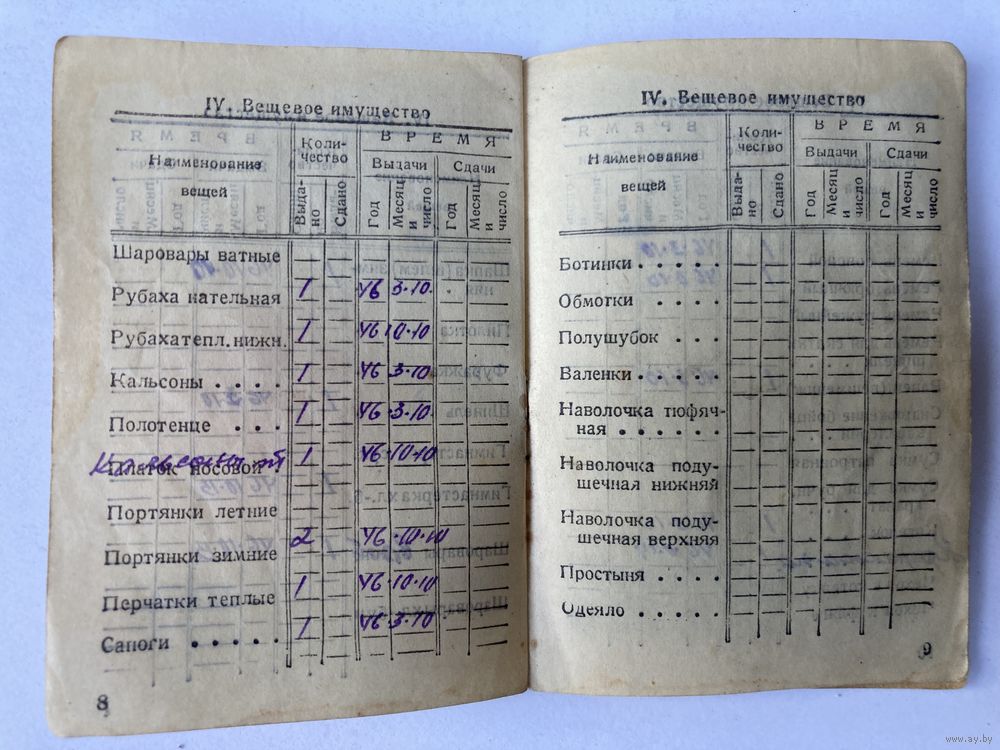 IV. Вещевое имущество
Наименование вещей
Коли-
чество
ВРЕМЯ
Выдачи
Сдачи
Выда-
но
Сдано
Год
Месяц и число
Год
Месяц и число
Шаровары ватные
Рубаха нательная 1 46 3·10.
Рубахатепл. нижн. 1 46 10·10
Кальсоны . . . . 1 46 3·10
Полотенце . . . 1 46·3·10.
Платок носовой 1 46·10·10
Портянки летние
Портянки зимние 2 46·10·10
Перчатки теплые 1 46·10·10
Сапоги . . . . . 1 46 3·10
8
IV. Вещевое имущество
Наименование
вещей
Коли-
чество
ВРЕМЯ
Выдачи
Сдачи
Выда-
но
Сдано
Год
Месяц и число
Год
Месяц и число
Ботинки . . . . .
Обмотки . . . .
Полушубок . . .
Валенки . . . . .
Наволочка тюфяч-
ная . . . . . .
Наволочка поду-
шечная нижняй
Наволочка поду-
шечная верхняя
Простыня . . . .
Одеяло . . . . .
9
www.ay.by